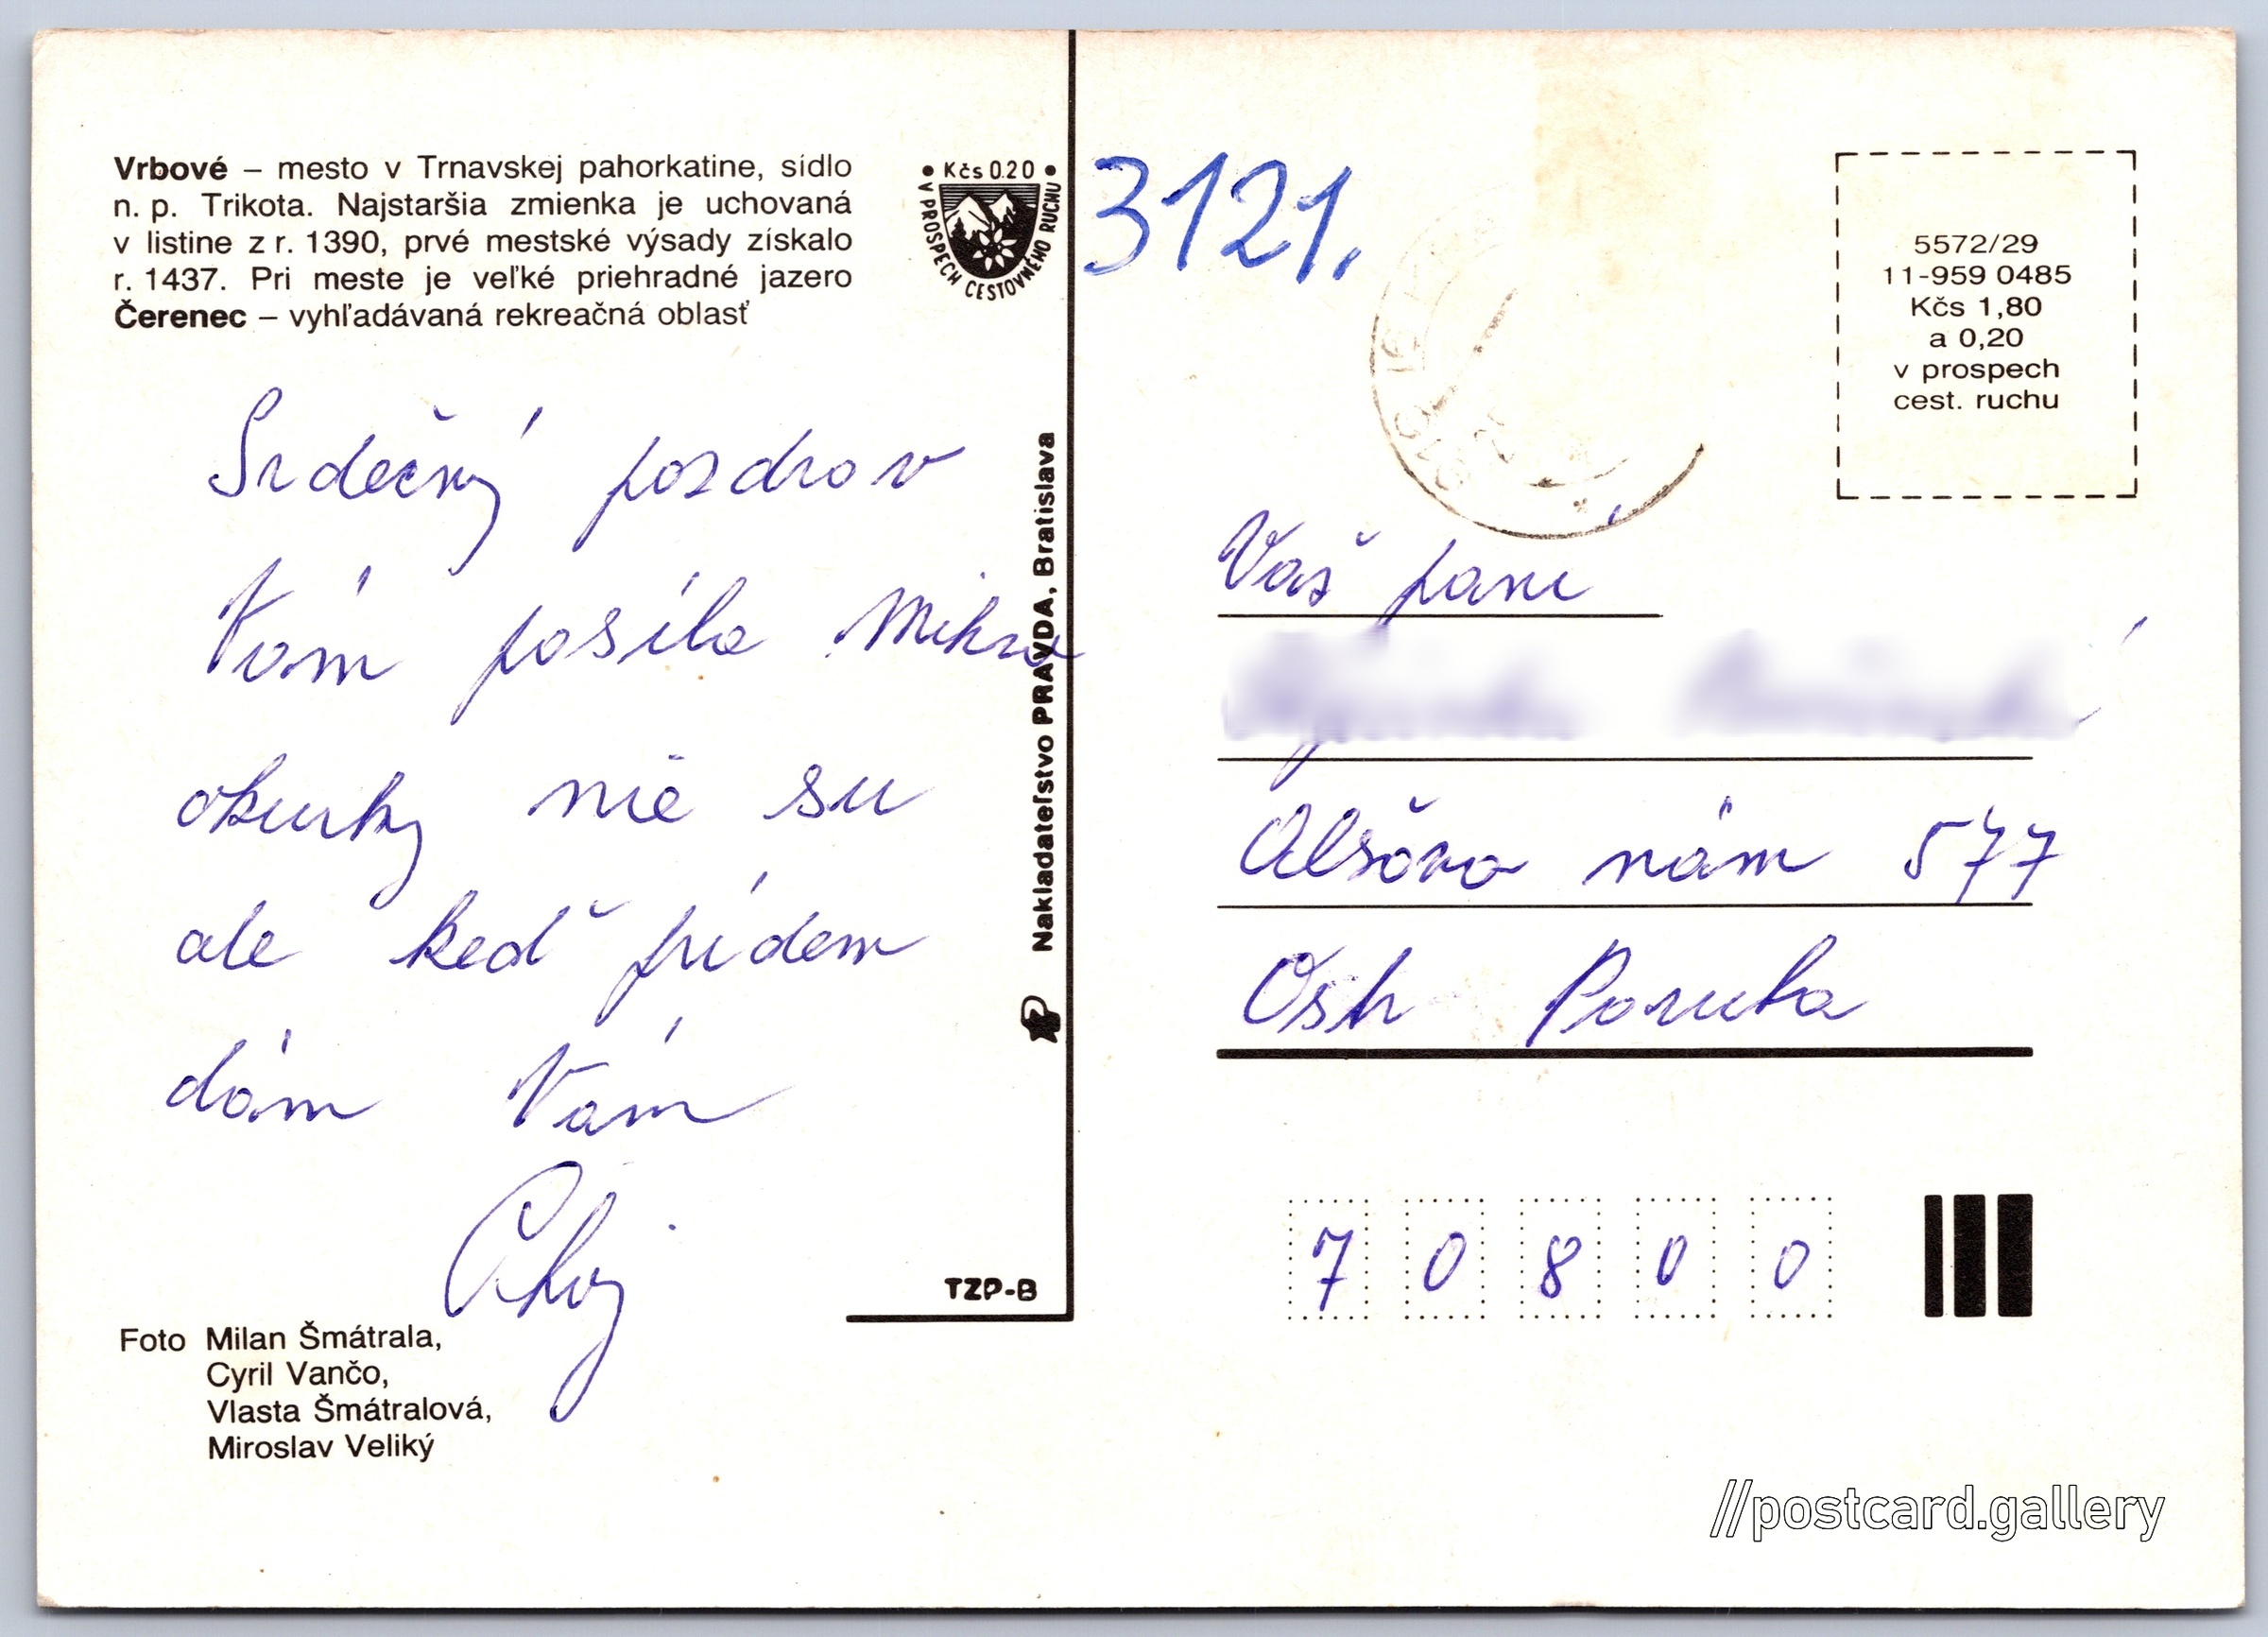 Vrbové – mesto v Trnavskej pahorkatine, sídlo
n. p. Trikota. Najstaršia zmienka je uchovaná
v listine z r. 1390, prvé mestské výsady získalo
r. 1437. Pri meste je veľké priehradné jazero
Čerenec – vyhľadávaná rekreačná oblasť
• Kčs 0.20 •
V PROSPECH CESTOVNÉHO RUCHU
Srdečný pozdrav
Vám posíla
okurky nie su
ale keď prídem
dám Vám
Ahoj
Foto Milan Šmátrala,
Cyril Vančo,
Vlasta Šmátralová,
Miroslav Veliký
Nakladateľstvo PRAVDA, Bratislava
TZP-B
3121.
5572/29
11-959 0485
Kčs 1,80
a 0,20
v prospech
cest. ruchu
Váš paní
Alšovo nám 577
Ostr Poruba
7 0 8 0 0
//postcard.gallery